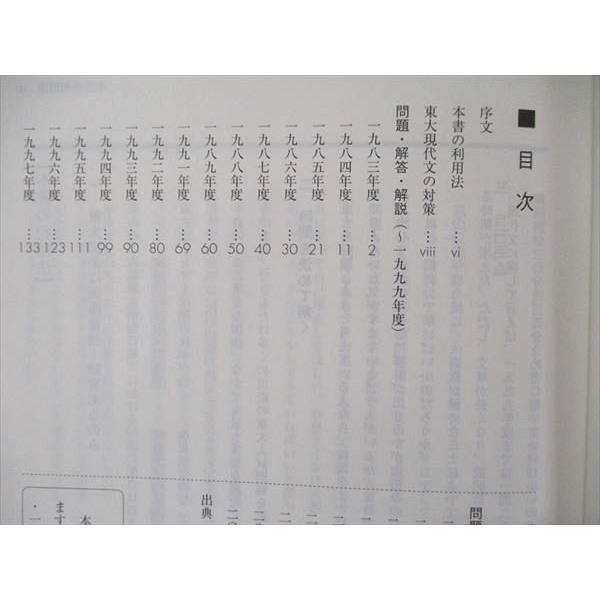 ■ 目次
序文
本書の利用法 … vi
東大現代文の対策 … viii
問題・解答・解説(～一九九九年度)
一九八三年度 … 2
一九八四年度 … 11
一九八五年度 … 21
一九八六年度 … 30
一九八七年度 … 40
一九八八年度 … 50
一九八九年度 … 60
一九九一年度 … 69
一九九二年度 … 80
一九九三年度 … 90
一九九四年度 … 99
一九九五年度 … 111
一九九六年度 … 123
一九九七年度 … 133
問題
出典
本
ます
・一